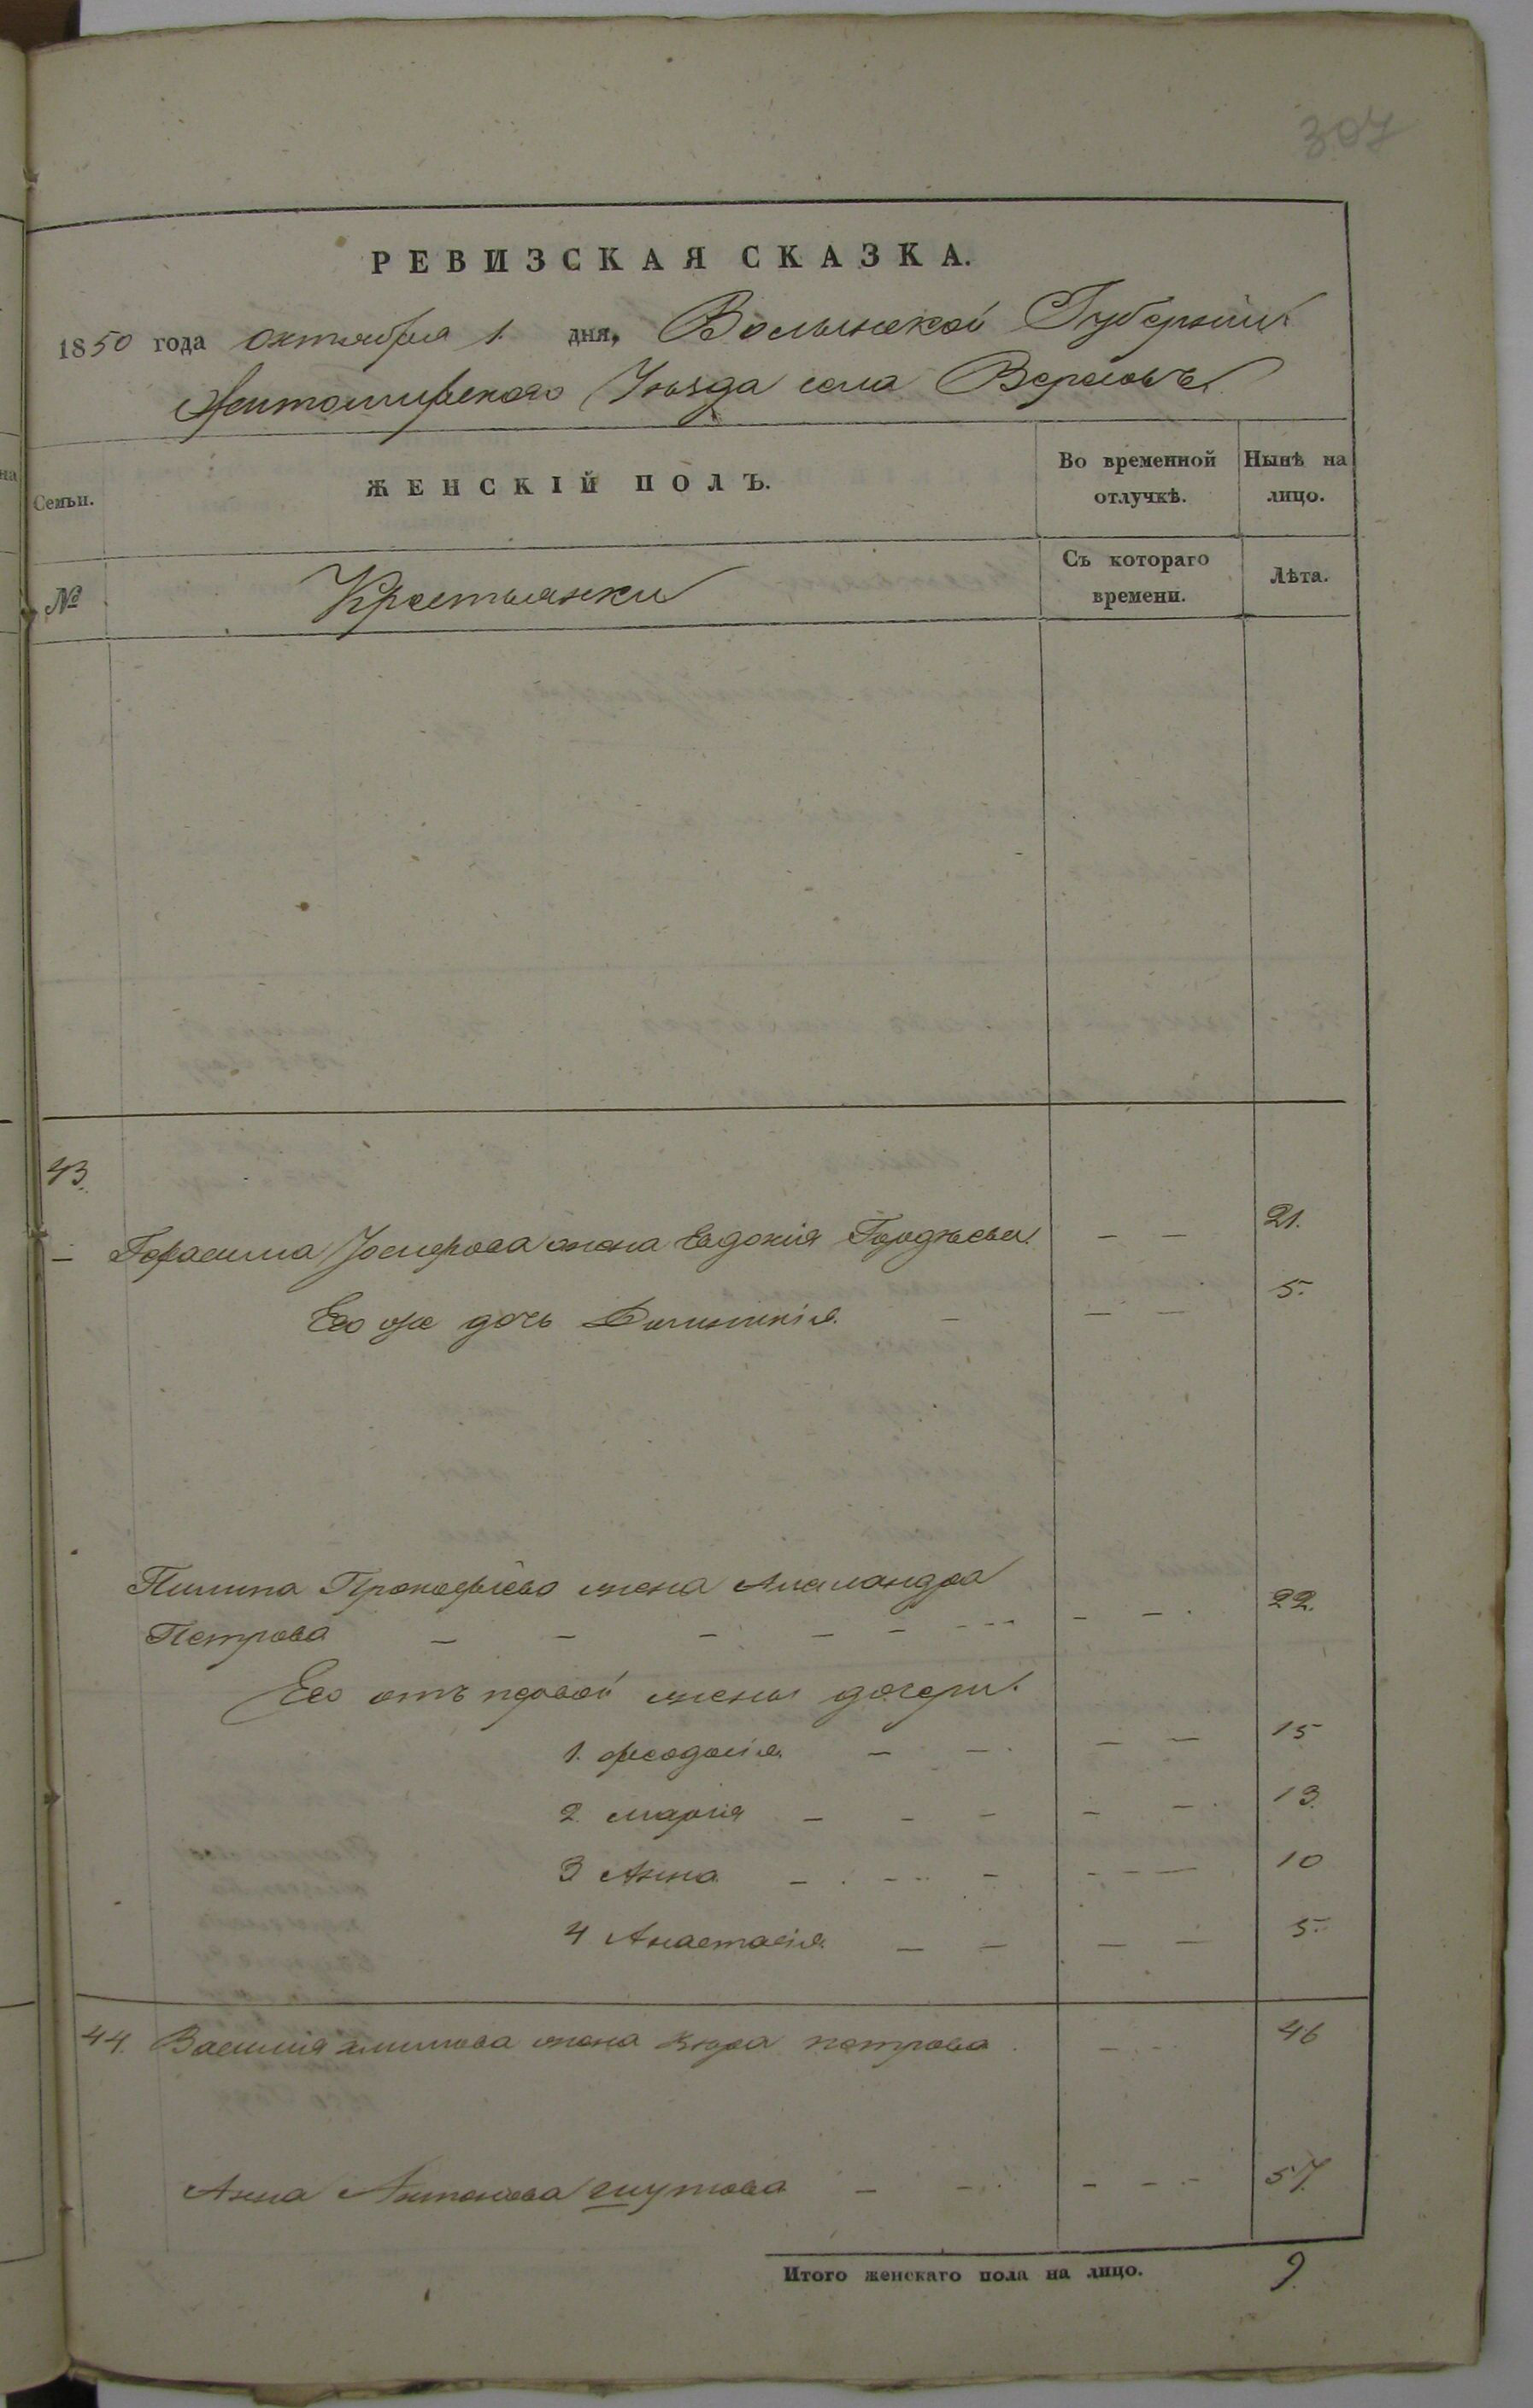 307
РЕВИЗСКАЯ СКАЗКА.
1850 года октября 1. дня, Волынской Губернии
Житомирского Уѣзда села
ЖЕНСКІЙ ПОЛЪ.
Во временной отлучкѣ.
Нынѣ на лицо.
Семьи.
№
Крестьянки
Съ котораго времени.
Лѣта.
43.
Герасима Іосифова жена Евдокія — — 21.
Его же дочь — — — 5.
Пилипа Прокофьева жена
Петрова — — — — — --- — — 22.
Его отъ первой жены дочери
1. Феодосія — — — — 15
2. Марія — — — — — 13.
3 Анна — — — — — — 10
4 Анастасія — — — — 5.
44. Василія жена петрова — 46
Анна Антонова — — — — — 57.
Итого женскаго пола на лицо. 9.